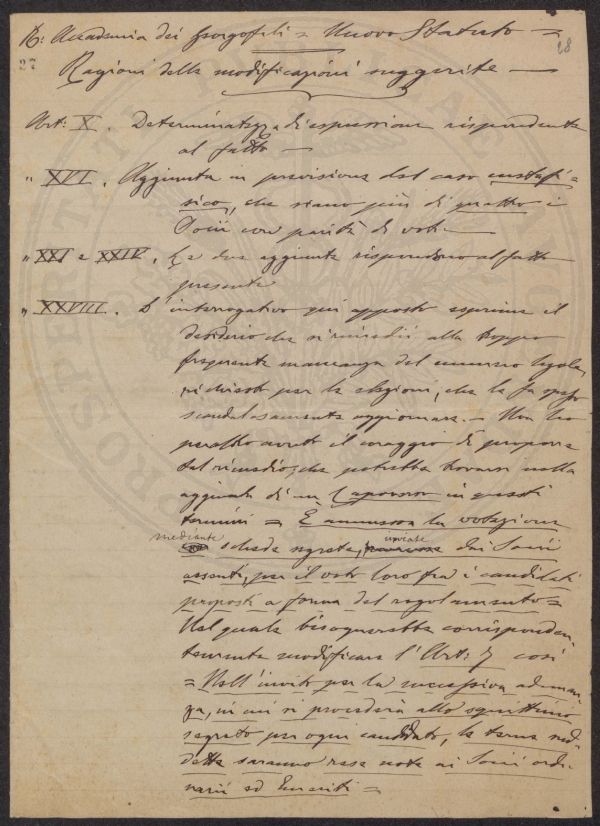 R: Accademia dei Georgofili = Nuovo Statuto =
28
27
Ragioni delle modificazioni suggerite —
Art: X. Determinatezza di espressione rispondente
al fatto —
" XVI. Aggiunta in previsione del caso
che siano più di quattro i
Socii con parità di voti —
" XXI e XXIV. Le due aggiunte rispondono al fatto
presente
" XXVIII. L'interrogativo qui apposto esprime il
desiderio che si rimedii alla troppo
frequente mancanza del numero legale,
richiesto per le elezioni, che le fa spesso
scandalosamente aggiornare. — Non ho
peraltro avuto il coraggio di proporre
tal rimedio, che potrebbe trovarsi nella
aggiunta di un Capoverso in questi
termini = È ammessa la votazione
mediante inviate
schede segrete, dai Socii
assenti, per il voto loro fra i candidati
proposti a forma del regolamento =
Nel quale bisognerebbe corrisponden-
temente modificare l'Art: 7 così
= Nell'invito per la successiva adunan-
za, in cui si procederà allo squittinio
segreto per ogni candidato, le terne sud-
dette saranno rese note ai Socii ordi-
narii ed Emeriti =
PROSPERITATI PUBLICAE